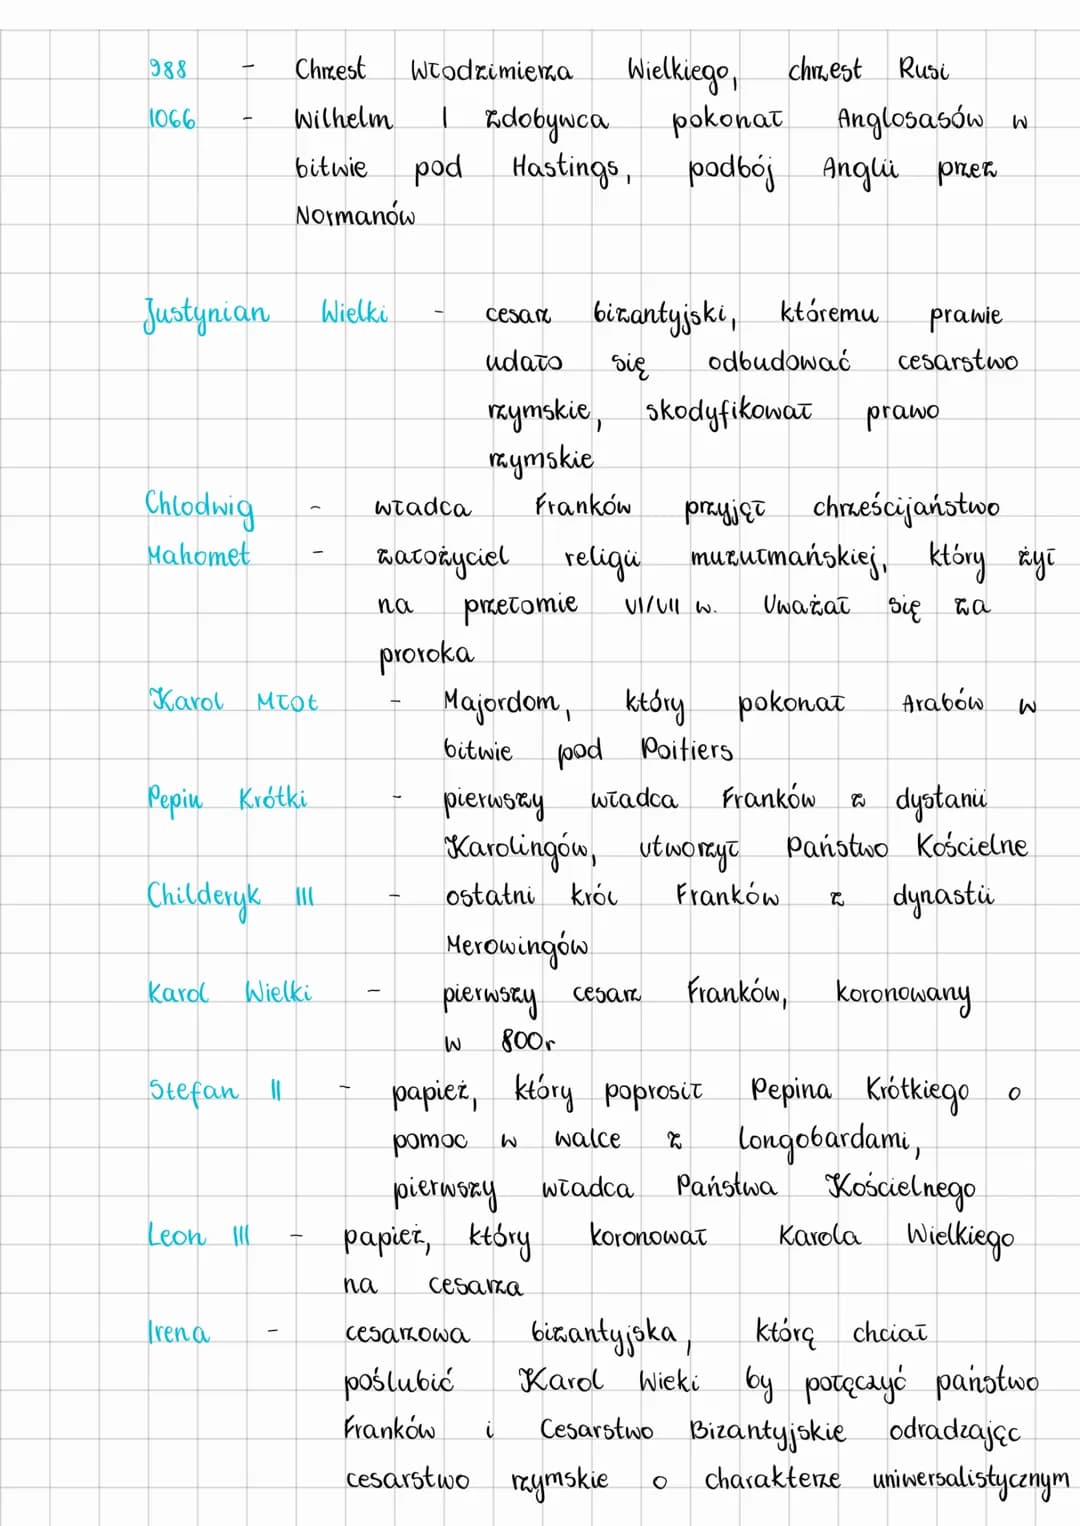 988 - Chrzest Włodzimierza Wielkiego, chrzest Rusi
1066 - Wilhelm I Zdobywca pokonał Anglosasów w
bitwie pod Hastings, podbój Anglii przez
Normanów
Justynian Wielki - cesarz bizantyjski, któremu prawie
udało się odbudować cesarstwo
rzymskie, skodyfikował prawo
rzymskie
Chlodwig - władca Franków przyjął chrześcijaństwo
Mahomet - założyciel religii muzułmańskiej, który żył
na przełomie VI/VII w. Uważał się za
proroka
Karol Młot - Majordom, który pokonał Arabów w
bitwie pod Poitiers
Pepin Krótki - pierwszy władca Franków z dystanii
Karolingów, utworzył Państwo Kościelne
Childeryk III - ostatni król Franków z dynastii
Merowingów
Karol Wielki - pierwszy cesarz Franków, koronowany
w 800r
Stefan II - papież, który poprosił Pepina Krótkiego o
pomoc w walce z Longobardami,
pierwszy władca Państwa Kościelnego
Leon III - papież, który koronował Karola Wielkiego
na cesarza
Irena - cesarzowa bizantyjska, którą chciał
poślubić Karol Wieki by połączyć państwo
Franków i Cesarstwo Bizantyjskie odradzając
cesarstwo rzymskie o charakterze uniwersalistycznym